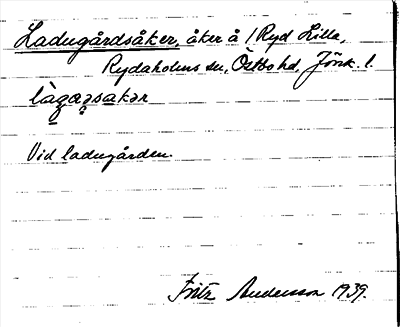 Ladugårdsåker, åker å 1 Ryd Lilla,
Rydaholms sn, Östbo hd, Jönk. l.
Vid ladugården.
Fritz Andersson 1939.